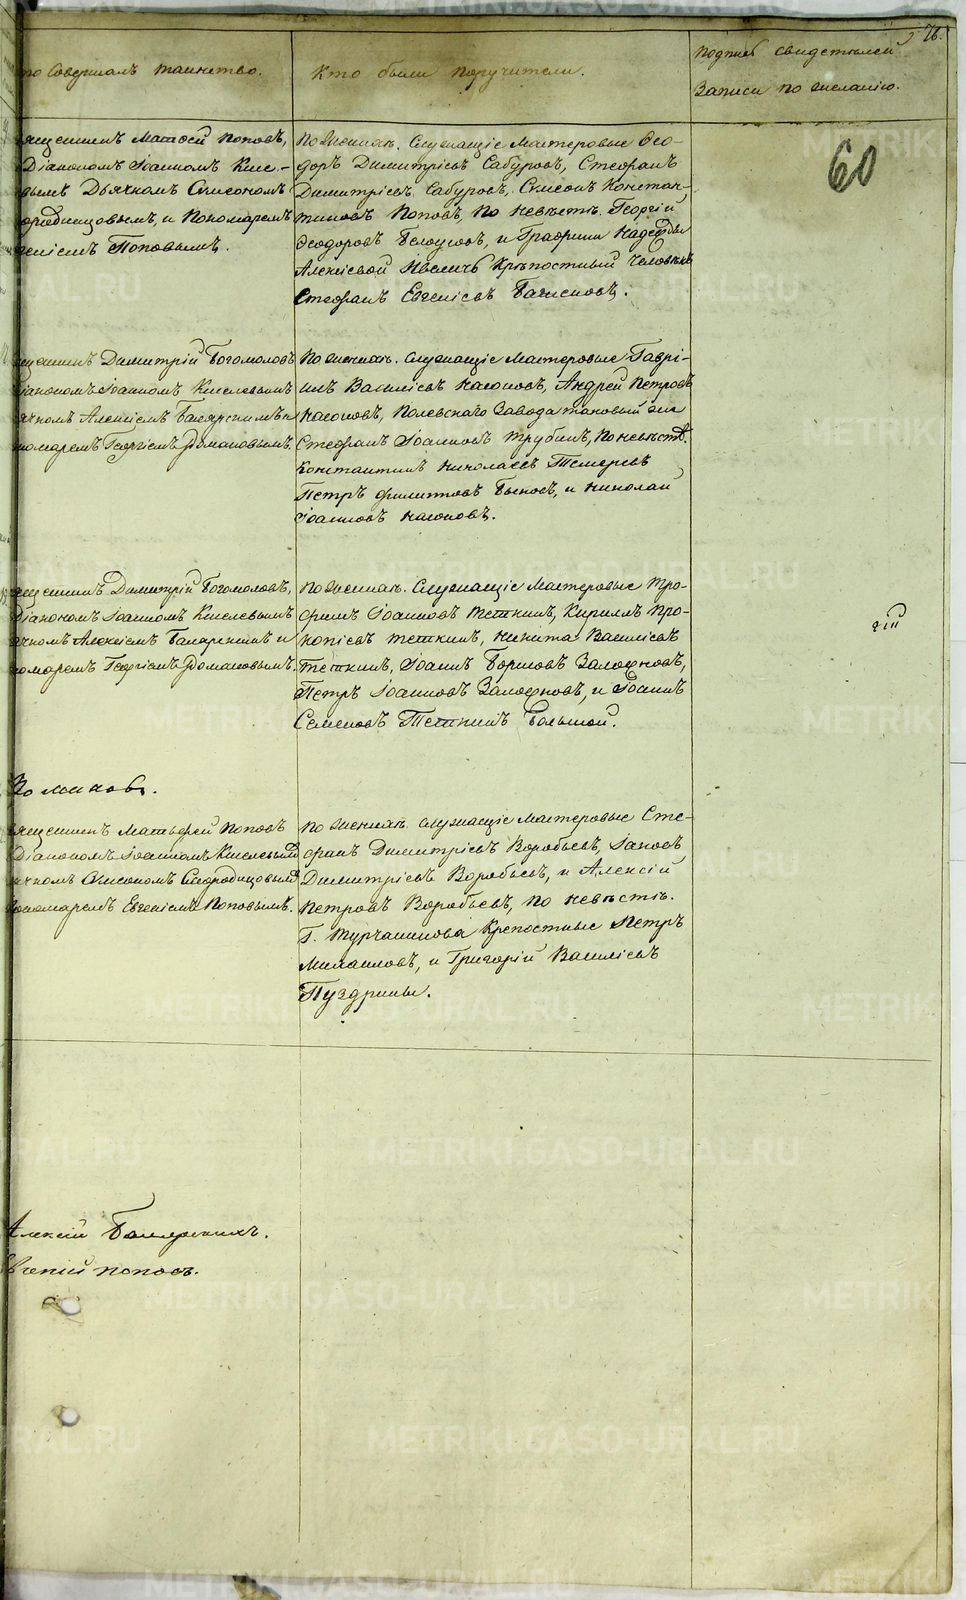 76.
то совершалъ таинство.
Кто были поручители.
Подпись свидетелей
записи по желанію.
60
ященникъ Матѳей Поповъ,
Діакономъ Іоанномъ Кисе-
вымъ Дьячкомъ Симеономъ
ородицовымъ, и Пономаремъ
геніемъ Поповымъ.
По Женихѣ. Служащіе Мастеровые Ѳео-
доръ Димитріевъ Сабуровъ, Стефанъ
Димитріевъ Сабуровъ, Симеонъ Констан-
тиновъ Поповъ, По Невѣстѣ. Георгій
Ѳеодоровъ Белоусовъ, и Графини Надежды
Алексіевой Ивеличь Крѣпостный Человѣкъ
Стефанъ Евгеніевъ
щенникъ Димитрій Богомоловъ
іакономъ Іоанномъ Киселевымъ
ячкомъ Алексіемъ
номаремъ Георгіемъ Романовымъ.
По женихѣ. Служащіе Мастеровые Гаврі-
илъ Василіевъ Насоновъ, Андрей Петровъ
Насоновъ, Полевскаго Завода таковый же
Стефанъ Іоанновъ Трубинъ, По невѣстѣ.
Константинъ Николаевъ Темеревъ
Петръ Филипповъ Быковъ, и Николай
Іоанновъ Насоновъ.
ященникъ Димитрій Богомоловъ,
Діакономъ Іоанномъ Киселевымъ
ячкомъ Алексіемъ и
номаремъ Георгіемъ Романовымъ.
По Женихѣ. Служащіе Мастеровые Тро-
фимъ Іоанновъ Теткинъ, Кирилъ Про-
копіевъ Теткинъ, Никита Василіевъ
Теткинъ, Іоаннъ Борисовъ
Петръ Іоанновъ и Іоаннъ
Семеновъ Теткинъ Большой.
гій
Поликовъ.
ященникъ Матьфей Поповъ
Діакономъ Іоанномъ Киселевымъ
ячкомъ Симеономъ Смородинцовымъ
Пономаремъ Евгеніемъ Поповымъ.
По Женихѣ. Служащіе Мастеровые Сте-
фанъ Димитріевъ Воробьевъ, Іаковъ
Димитріевъ Воробьевъ, и Алексій
Петровъ Воробьевъ, По невѣстѣ.
Г. Турчанинова Крепостные Петръ
Михаиловъ, и Григорій Василіевъ
Пуздрины.
Алексій
вгеній Поповъ.
METRIKI.GASO-URAL.RU